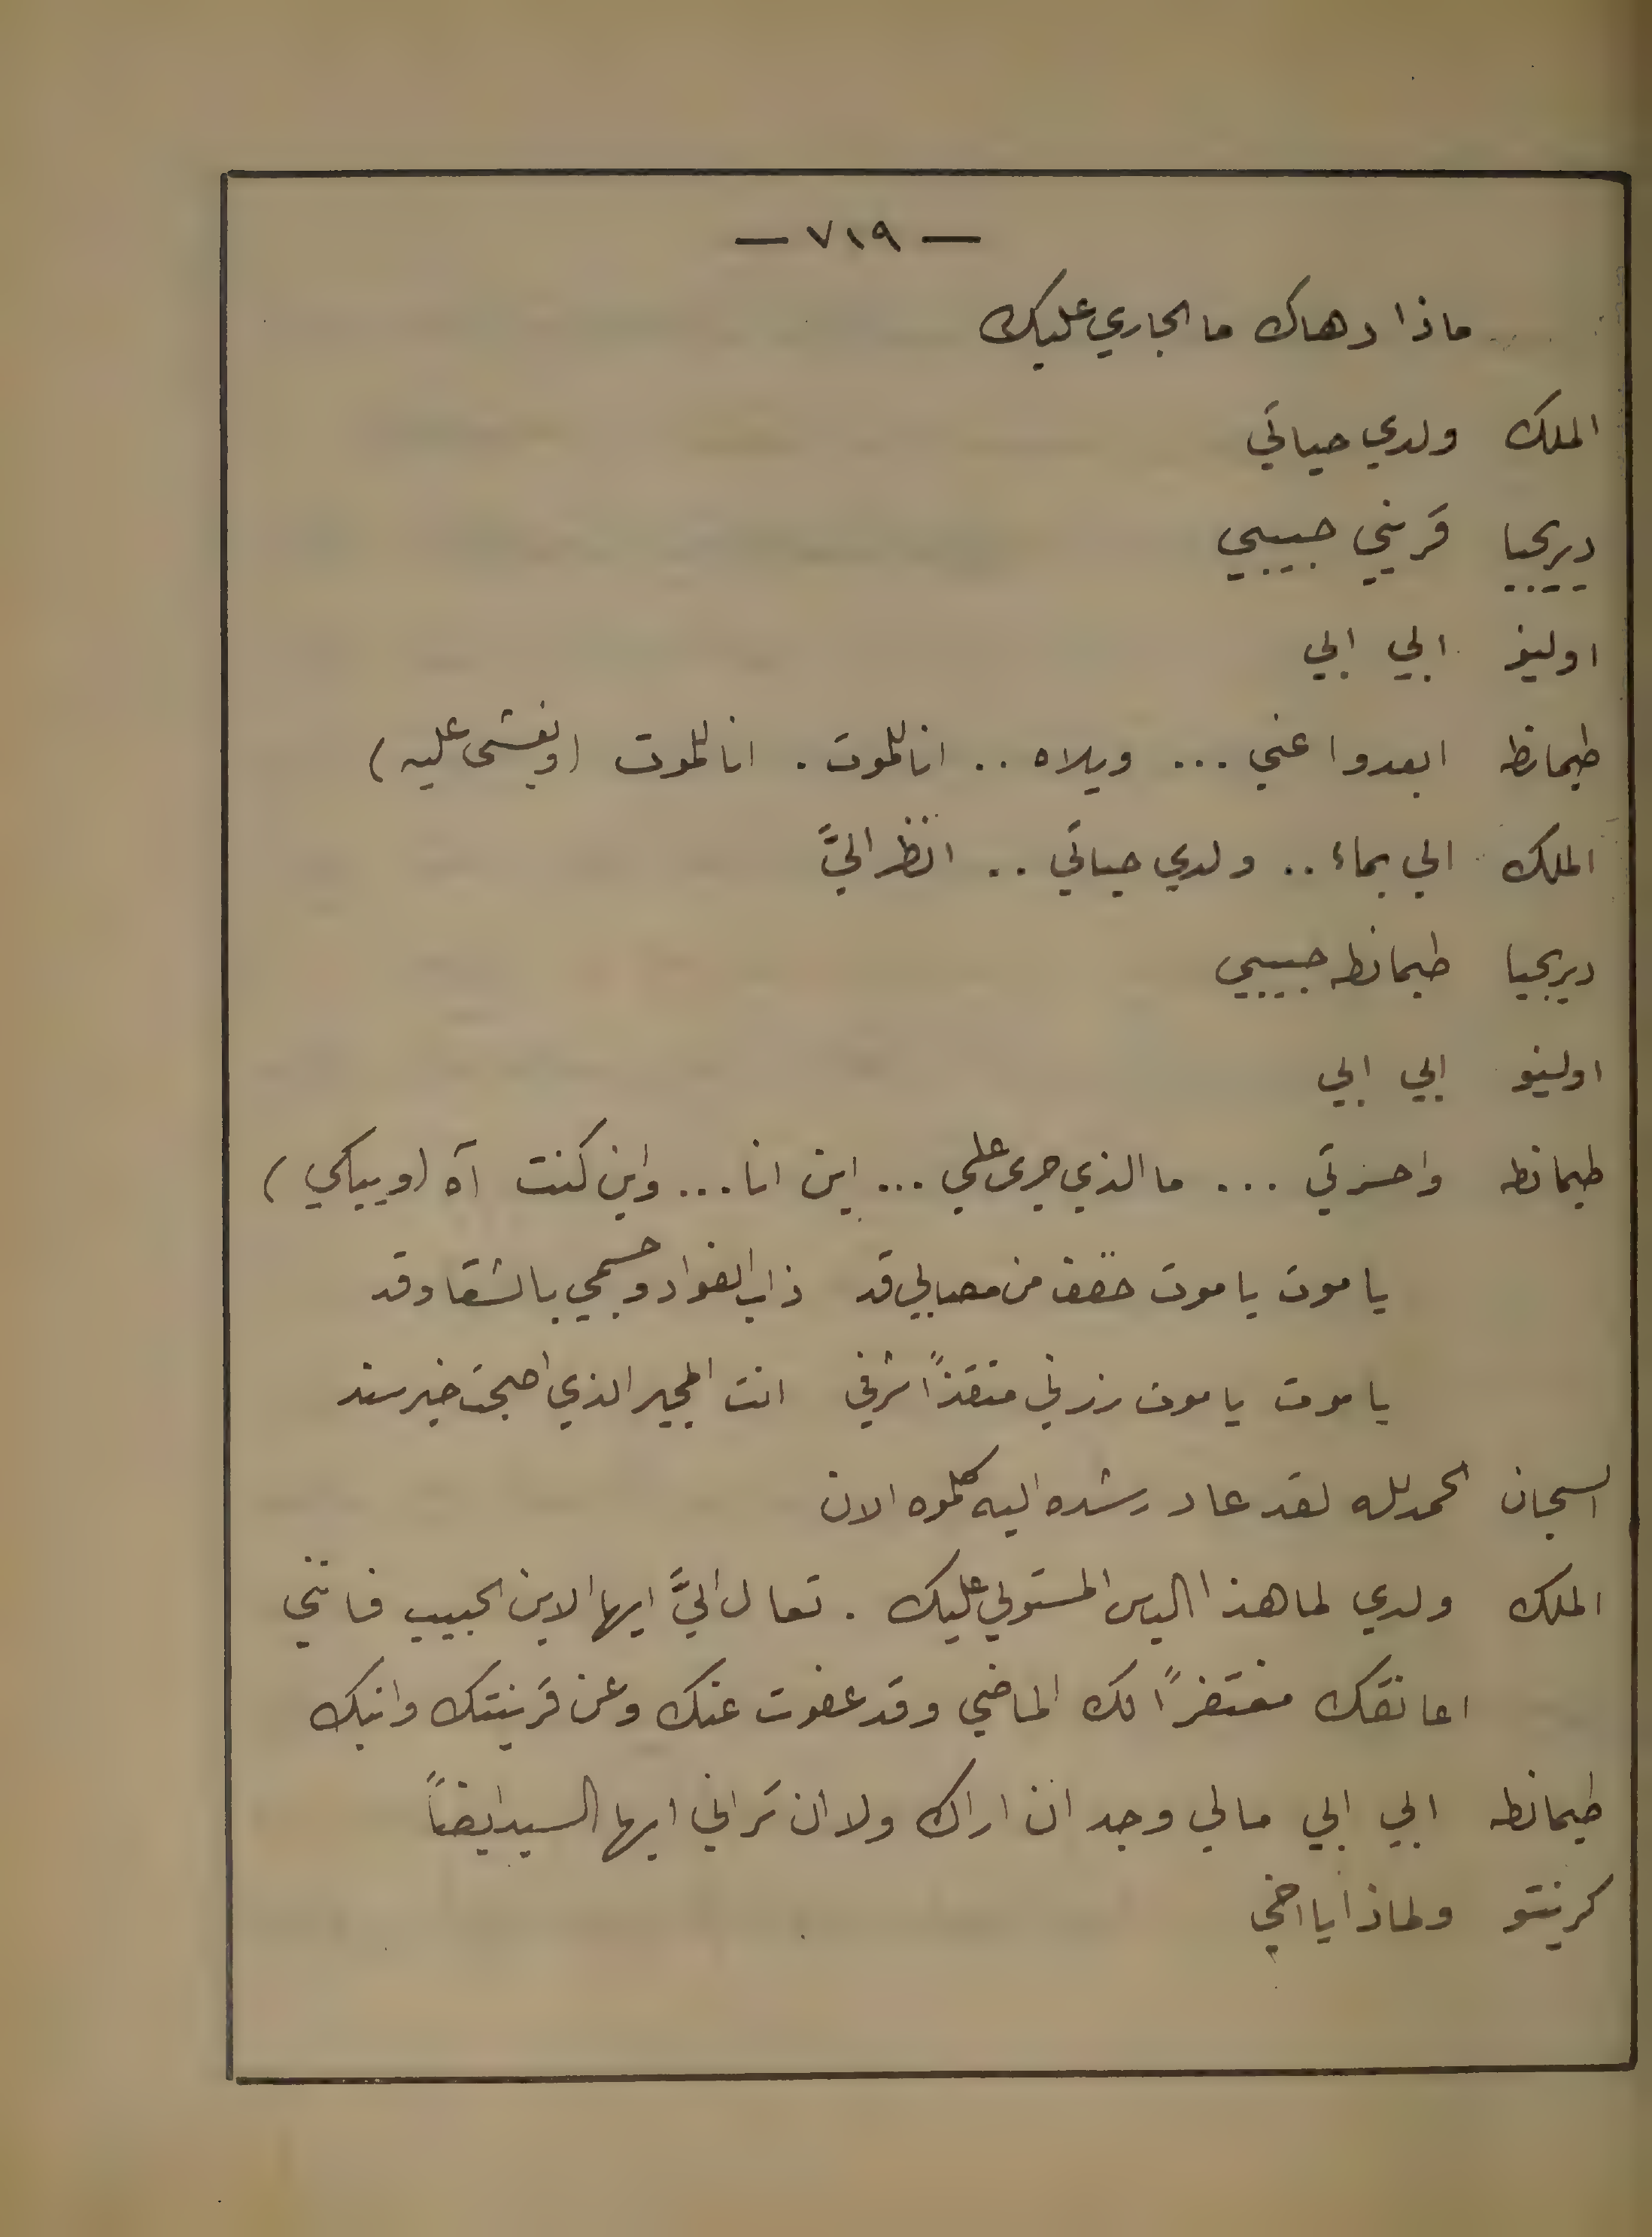 — ٧١٩ —
ماذا دهاك ما الجاري عليك
الملك ولدي حياتي
ديريجيا قريني حبيبي
اولينو ابي ابي
طيمانطه ابعدوا عني ... ويلاه .. انا للموت . انا للموت (ويغشى عليه)
الملك الي بماء .. ولدي حياتي .. انظر اليَّ
ديريجيا طيمانطه حبيبي
اولينو ابي ابي
طيمانطه واحسرتي ... ما الذي جرى علي ... اين انا ... واين كنت آه (ويباكي)
يا موت يا موت خفف من مصابي قد ذاب الفواد وجسمي بالشقا وقد
يا موت يا موت زرني منقذاً شرفي انت المجير الذي اصبحت خير سند
السجان الحمد لله لقد عاد رشده اليه كلموه الان
الملك ولدي لما هذا الياس المستولي عليك . تعال اليَّ ايها الابن الحبيب فانني
اعانقك مغتفراً لك الماضي وقد عفوت عنك وعن قرينتك وابنك
طيمانطه ابي ابي مالي وجد ان اراك ولا ان تراني ايها السيد ايضاً
كرينتو ولماذا يا اخي